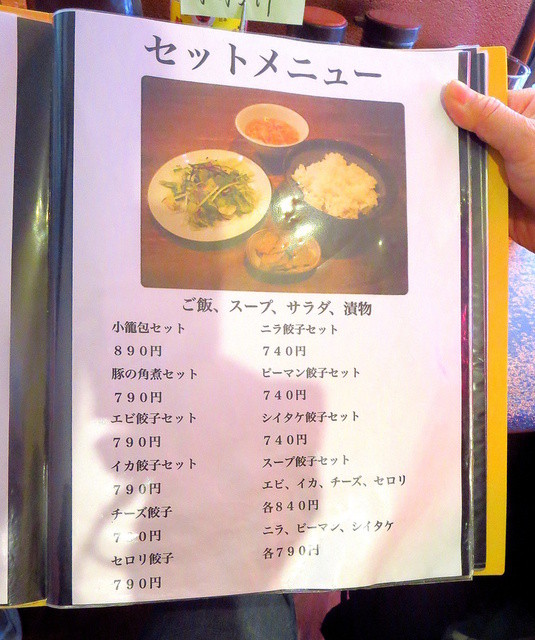 セットメニュー
ご飯、スープ、サラダ、漬物
小籠包セット
890円
豚の角煮セット
790円
エビ餃子セット
790円
イカ餃子セット
790円
チーズ餃子
セロリ餃子
790円
ニラ餃子セット
740円
ピーマン餃子セット
740円
シイタケ餃子セット
740円
スープ餃子セット
エビ、イカ、チーズ、セロリ
各840円
ニラ、ピーマン、シイタケ
各790円